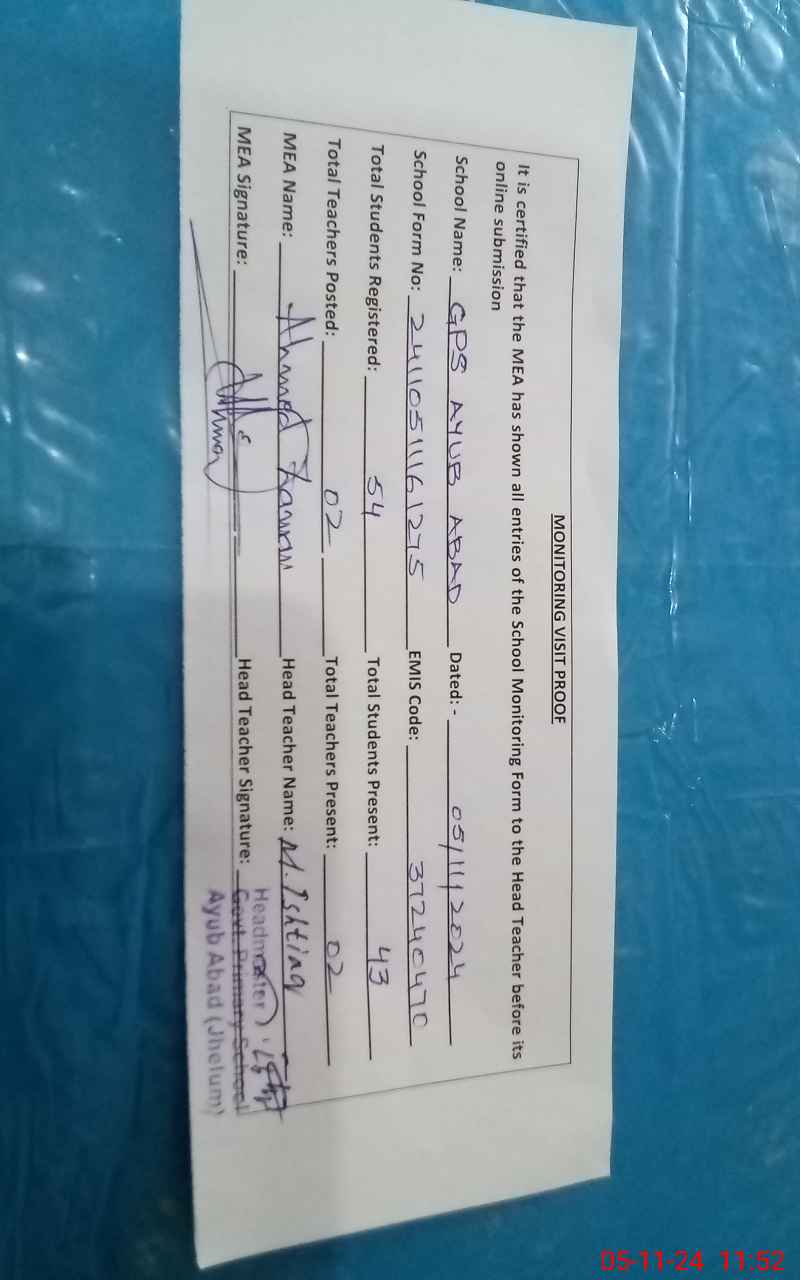 MONITORING VISIT PROOF
It is certified that the MEA has shown all entries of the School Monitoring Form to the Head Teacher before its
online submission
School Name: GPS AYUB ABAD Dated: - 05/11/2024
School Form No: 24110511161275 EMIS Code: 37240470
Total Students Registered: 54 Total Students Present: 43
Total Teachers Posted: 02 Total Teachers Present: 02
MEA Name: Ahmed Head Teacher Name: M. Ishtiaq
MEA Signature: Head Teacher Signature:
Headmaster
Govt. Primary School
Ayub Abad (Jhelum)
05-11-24 11:52